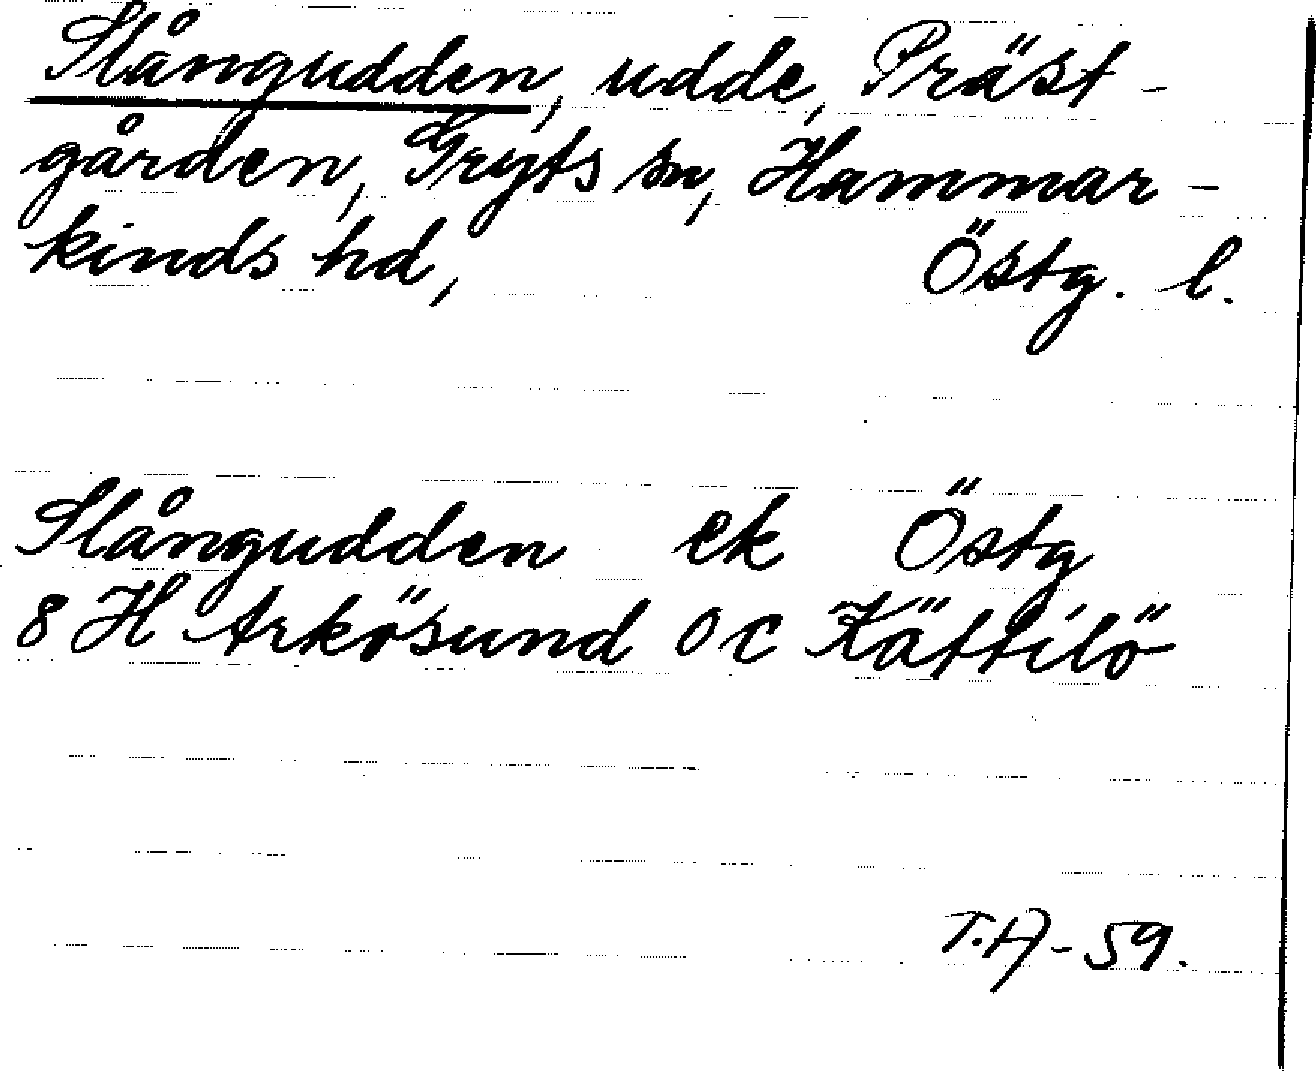 Slångudden, udde, Präst-
gården, Gryts sn, Hammar-
kinds hd, Östg. l.
Slångudden ek Östg
8 H Arkösund 0 c Kättilö
T.A-59.